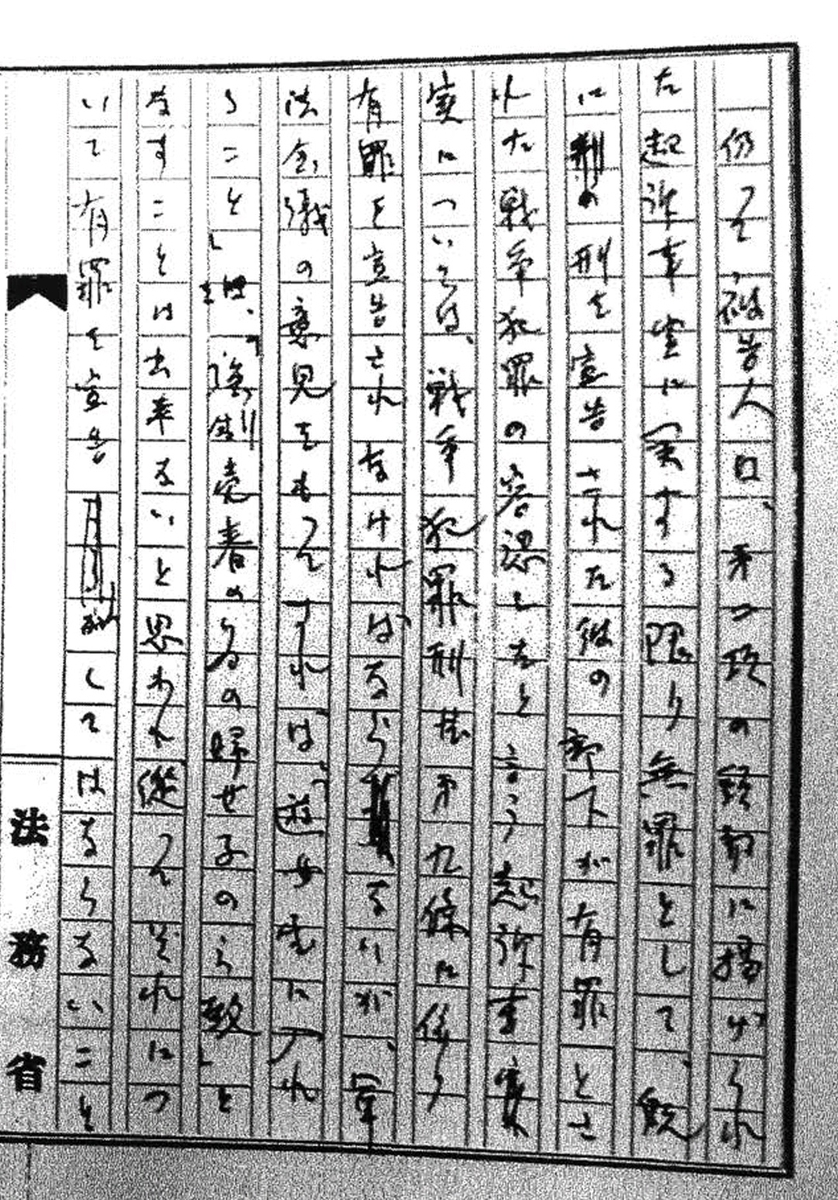 仍つて、被告人は、第二項の頭部に掲げられ
た起訴事実に関する限り無罪として、既
に刑の宣告された彼の部下が有罪とさ
れた戦争犯罪の容認したと言う起訴事実
実については、戦争犯罪刑法第九条に係り
有罪を宣告されなければならないが、軍
法会議の意見をもつてすれば「遊女屋に入れ
ること」は、「強制売春のための婦女子のら致」と
なすことは出来ないと思われ從つてそれにつ
いて有罪を宣告してはならないこと
法務省